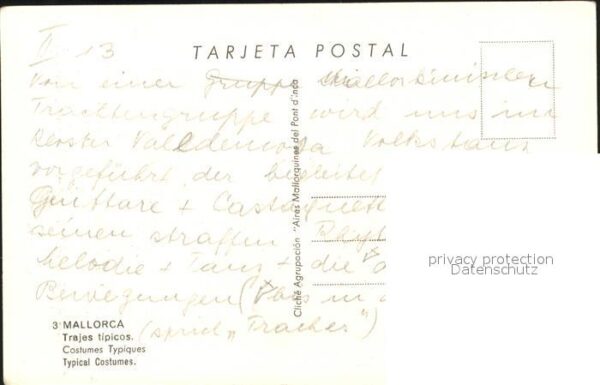 II 13
TARJETA POSTAL
Von einer Gruppe Mallorkinischen
Trachtengruppe wird uns im
Kloster Valldemosa Volkstanz
vorgeführt der begleitet
Guittare + Castagnett
seinen straffen Rhyt
Melodie + Tanz + die
Bewegungen ( bis in
(sprich „Tracher")
Cliché Agrupación "Aires Mallorquines del Pont d'Inca
privacy protection
Datenschutz
3 MALLORCA
Trajes típicos.
Costumes Typiques
Typical Costumes.